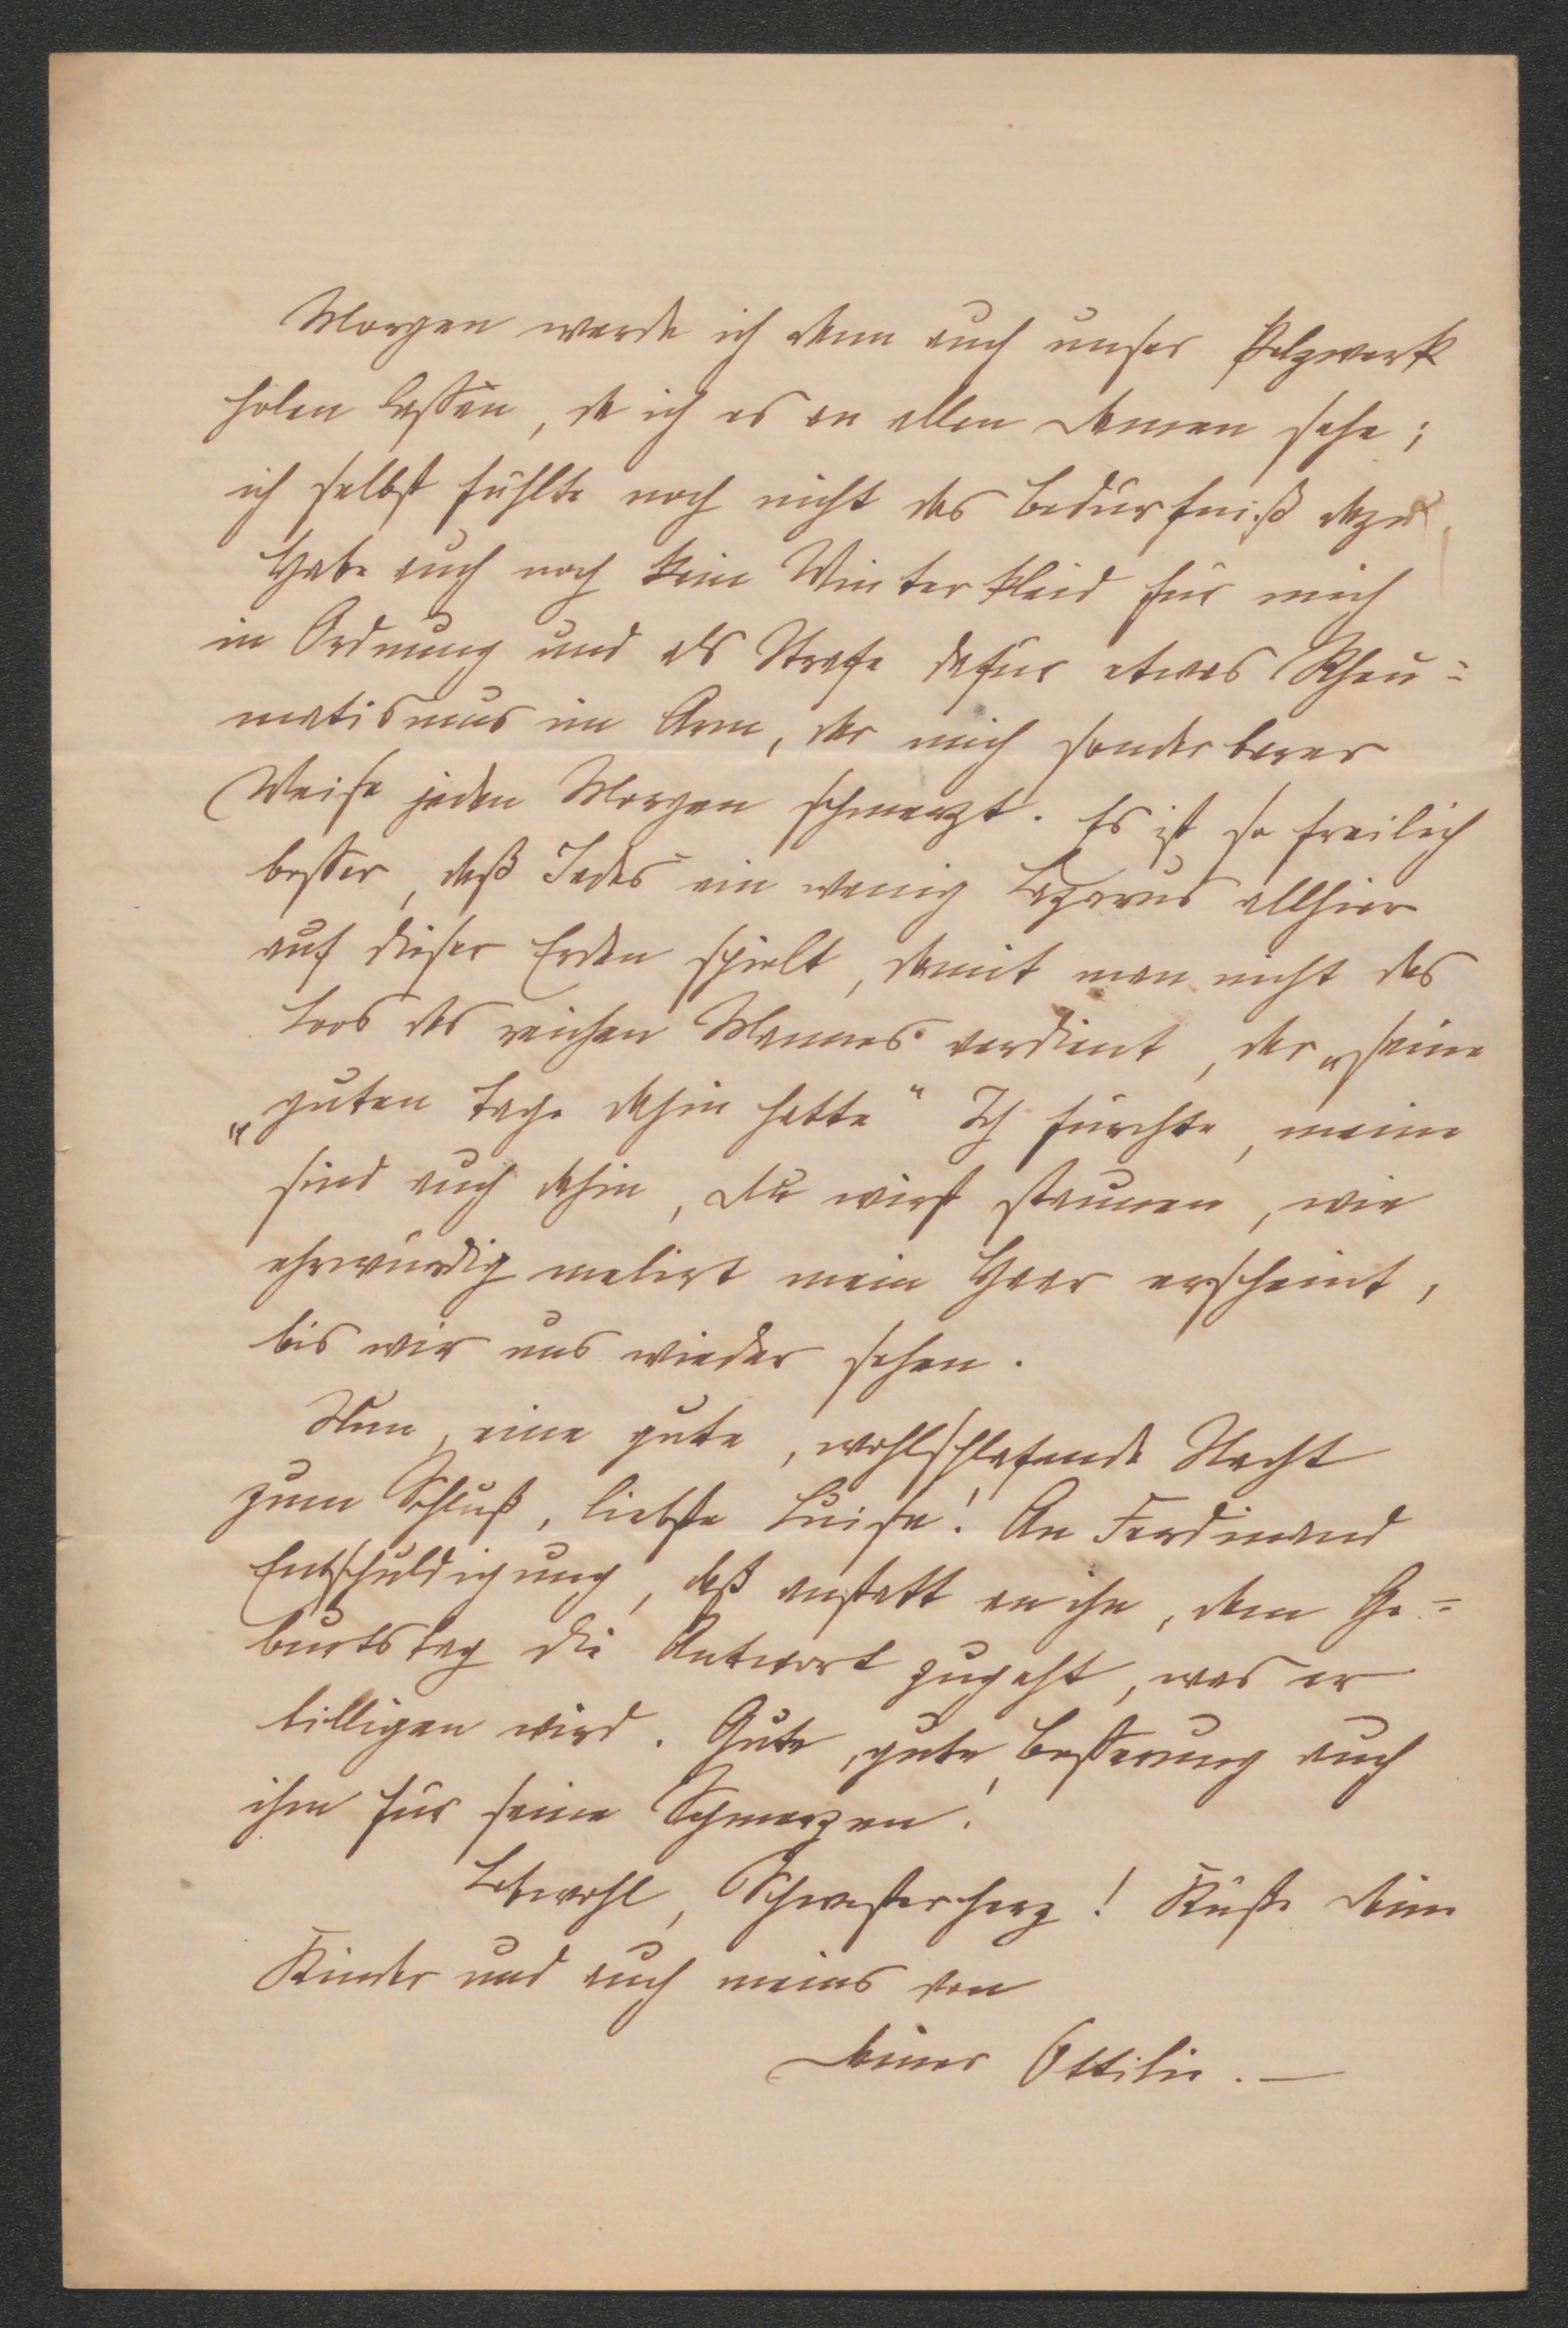 Morgen werde ich denn auch unser Pelzwerk
holen lassen, da ich es an allen Damen sehe;
ich selbst fühlte noch nicht das Bedürfniß dazu.
Habe auch noch kein Winterkleid für mich
in Ordnung und als Strafe dafür etwas Rheu=
matismus im Arm, der mich sonderbarer
Weise jeden Morgen schmerzt. Es ist ja freilich
besser, daß Jedes ein wenig Lazarus allhier
auf dieser Erden spielt, damit man nicht das
Loos des reichen Mannes verdient, der „seine
„guten Tage dahin hatte“ Ich fürchte, meine
sind auch dahin, Du wirst staunen, wie
ehrwürdig melirt mein Haar erscheint,
bis wir uns wieder sehen.
Nun, eine gute, wohlschlafende Nacht
zum Schluß, liebste Luise! An Ferdinand
Entschuldigung, daß anstatt an ihn, dem Ge=
burtstag die Antwort zugeht, was er
billigen wird. Gute, gute Besserung auch
ihm für seine Schmerzen!
Lebwohl, Schwesterherz! Küsse Deine
Kinder und auch meins von
Deiner Ottilie. —